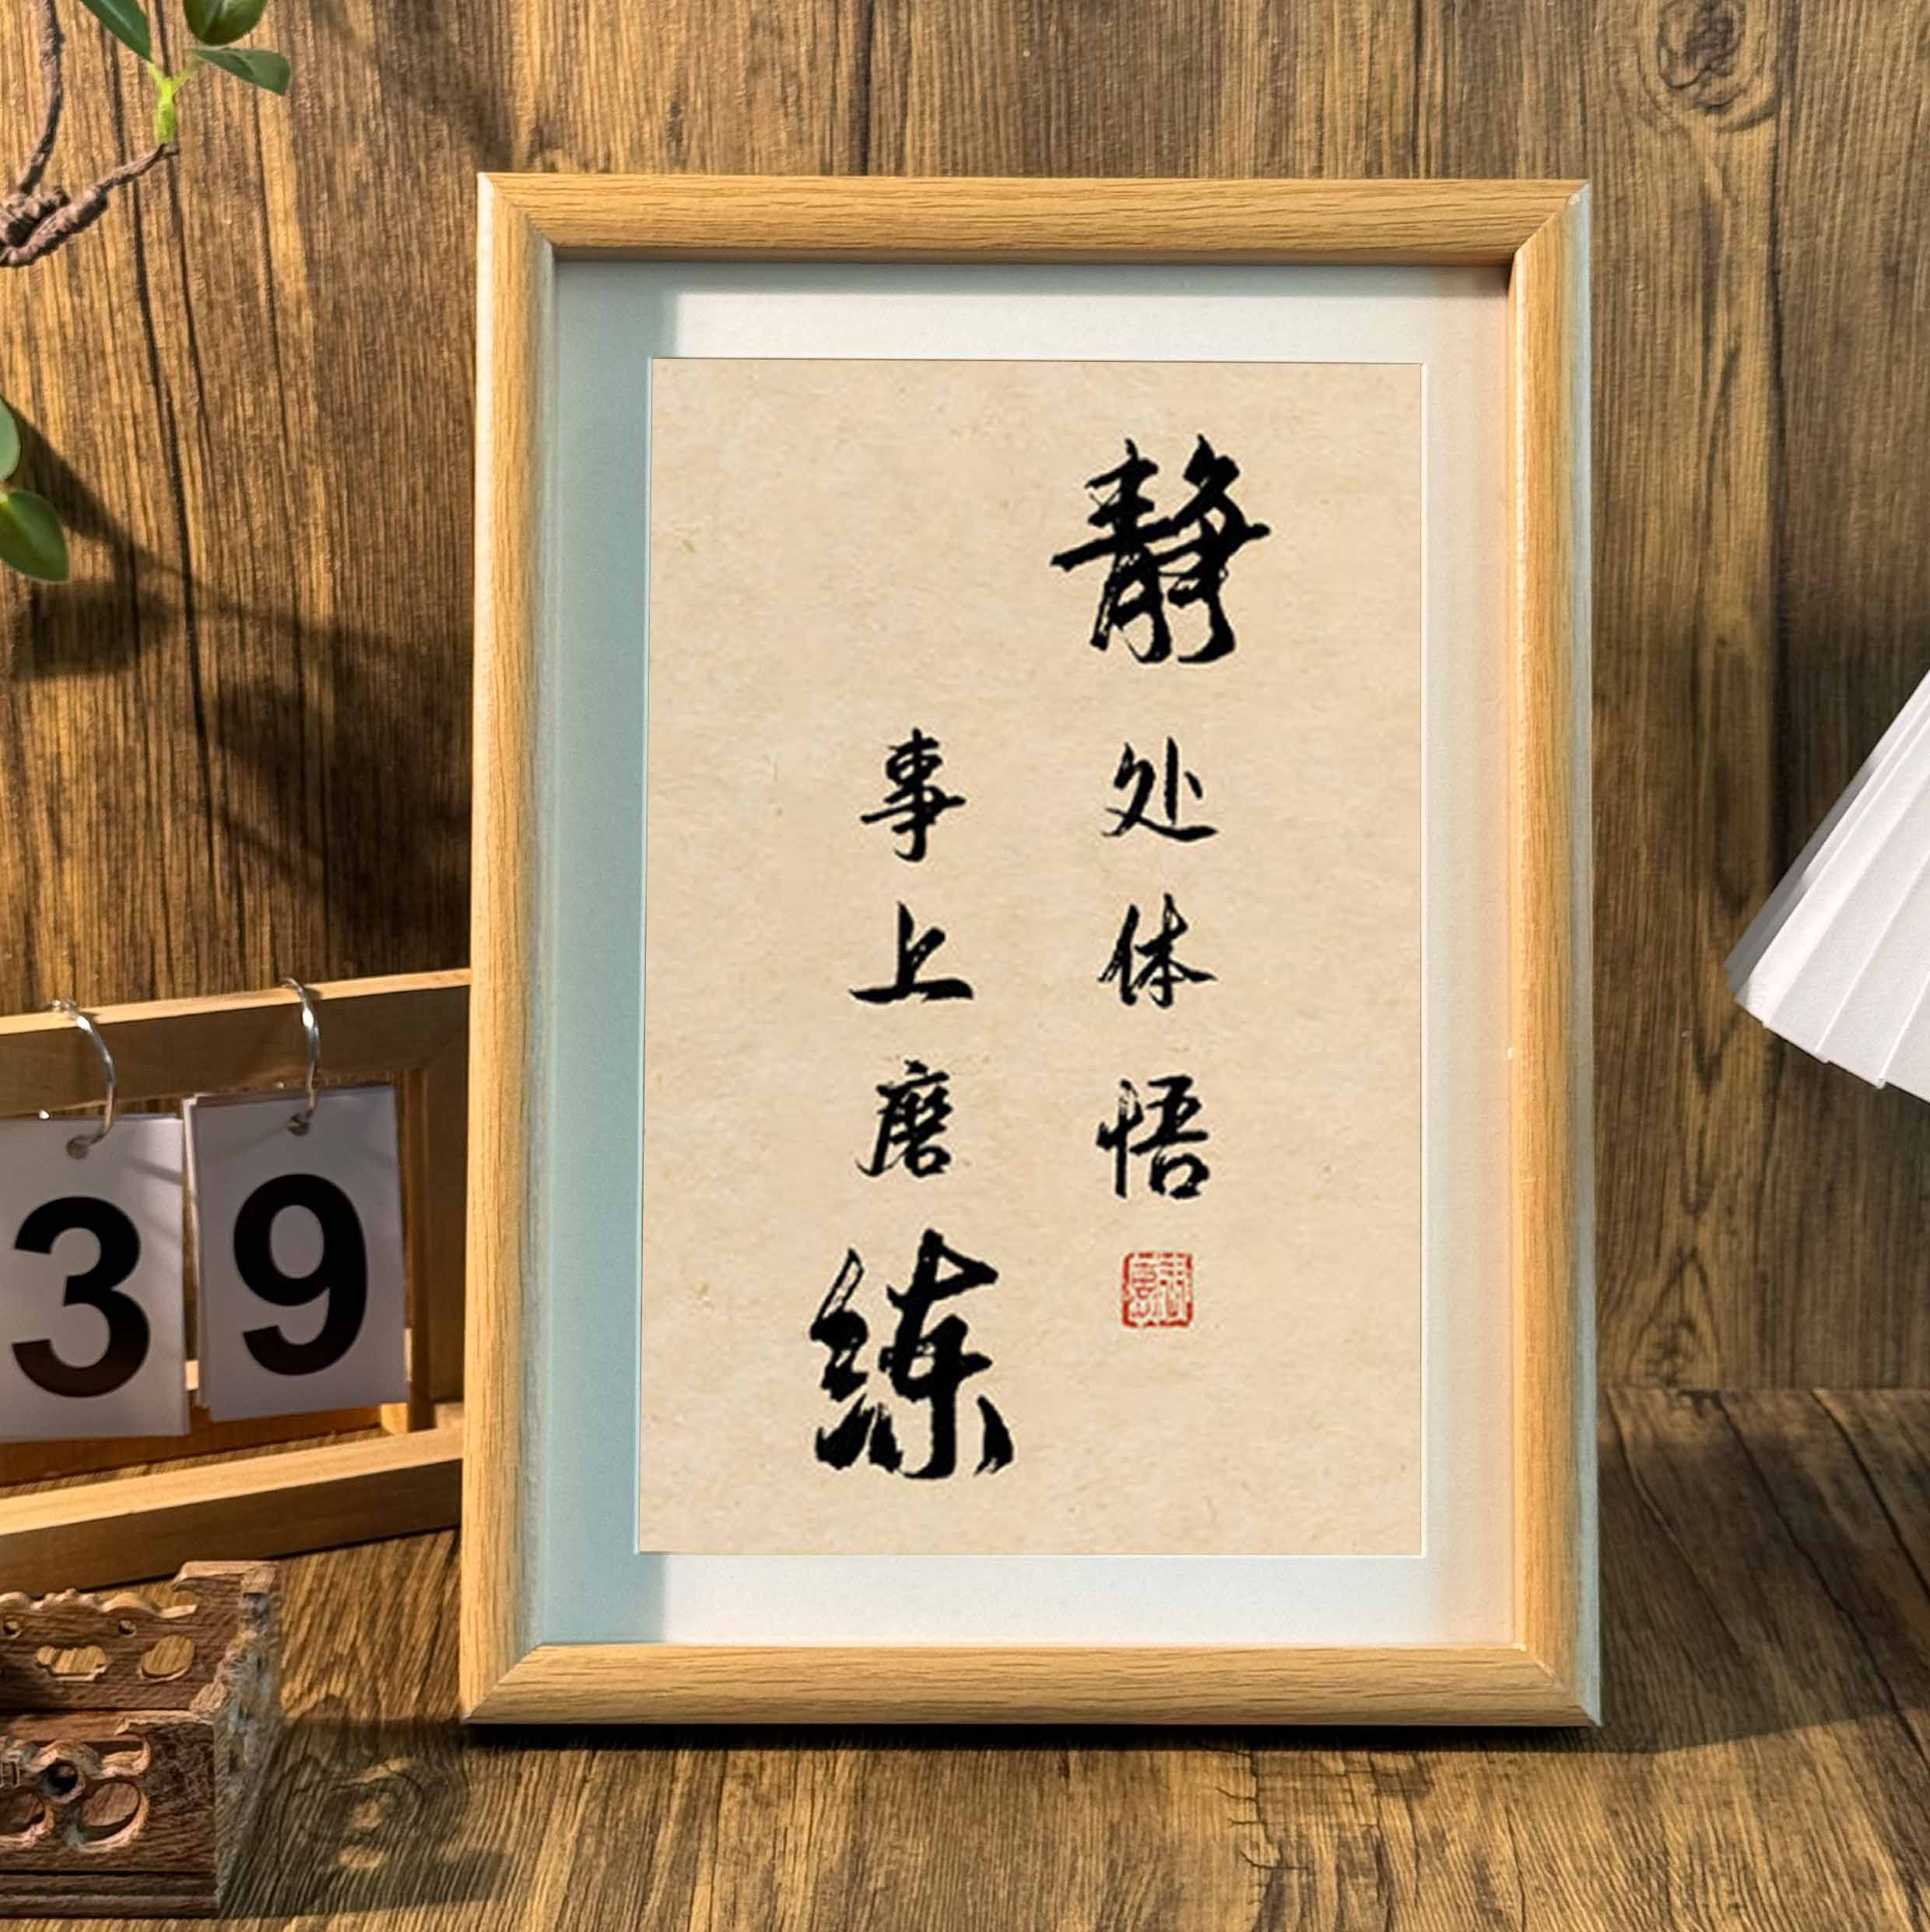 静处体悟
事上磨练
39